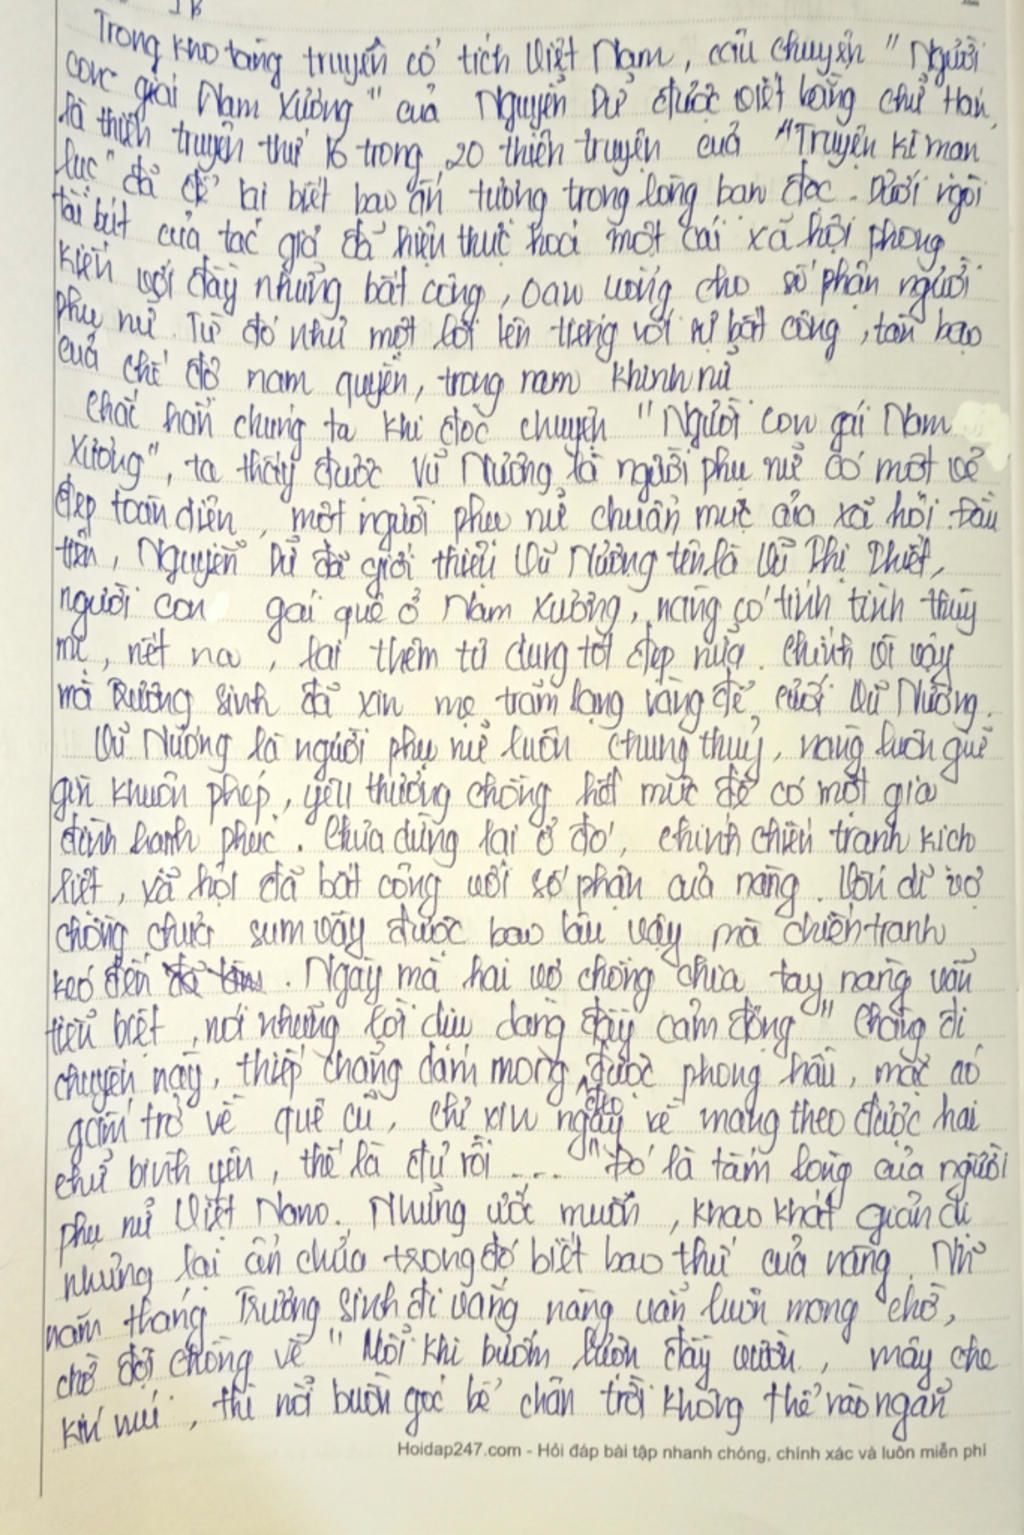 Trong kho tàng truyện cổ tích Việt Nam, câu chuyện "Người
con gái Nam Xương" của Nguyễn Dữ được viết bằng chữ Hán,
là thiên truyện thứ 16 trong 20 thiên truyện của "Truyện kì man
lục" đã để lại biết bao ấn tượng trong lòng bạn đọc. Dưới ngòi
tài bút của tác giả đã hiện thực hoá một cái xã hội phong
kiến với đầy những bất công, oan uổng cho số phận người
phụ nữ. Từ đó như một lời lên tiếng với sự bất công, tàn bạo
của chế độ nam quyền, trọng nam khinh nữ
Chắc hẳn chúng ta khi đọc chuyện "Người con gái Nam
Xương", ta thấy được Vũ Nương là người phụ nữ có một vẻ
đẹp toàn diện, một người phụ nữ chuẩn mực của xã hội. Đầu
tiên, Nguyễn Dữ đã giới thiệu Vũ Nương tên là Vũ Thị Thiết,
người con gái quê ở Nam Xương, nàng có tính tình thuỳ
mị, nết na, lại thêm tư dung tốt đẹp nữa. Chính vì vậy
mà Trương Sinh đã xin mẹ trăm lạng vàng để cưới Vũ Nương.
Vũ Nương là người phụ nữ luôn chung thuỷ, nàng luôn giữ
gìn khuôn phép, yêu thương chồng hết mực để có một gia
đình hạnh phúc. Chưa dừng lại ở đó, chính chiến tranh kịch
liệt, xã hội đã bất công với số phận của nàng. Vốn dĩ vợ
chồng chưa sum vầy được bao lâu vậy mà chiến tranh
kéo đến. Ngày mà hai vợ chồng chia tay nàng vẫn
tiễn biệt, nói những lời dịu dàng đầy cảm động "Chàng đi
chuyến này, thiếp chẳng dám mong được phong hầu, mặc áo
gấm trở về quê cũ, chỉ xin ngày về mang theo được hai
chữ bình yên, thế là đủ rồi...." Đó là tấm lòng của người
phụ nữ Việt Nam. Những ước muốn, khao khát giản dị
nhưng lại ẩn chứa trong đó biết bao thứ của nàng.
năm tháng Trương Sinh đi vắng nàng vẫn luôn mong chờ,
chờ đợi chồng về "Mỗi khi bướm lượn đầy vườn, mây che
kín núi, thì nỗi buồn góc bể chân trời không thể nào ngăn
Hoidap247.com - Hỏi đáp bài tập nhanh chóng, chính xác và luôn miễn phí